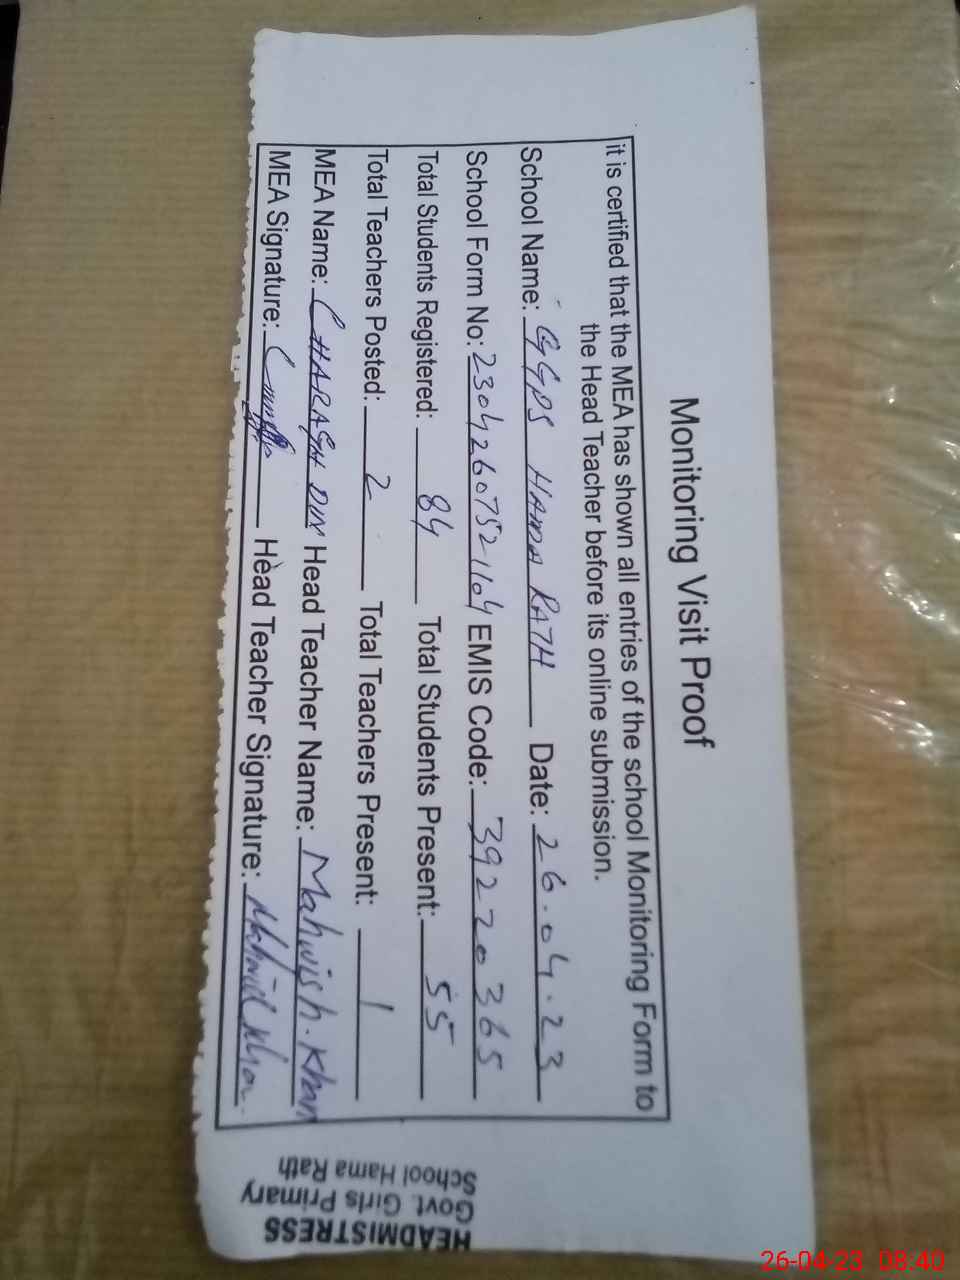 Monitoring Visit Proof
it is certified that the MEA has shown all entries of the school Monitoring Form to
the Head Teacher before its online submission.
School Name: GGPS HAMA RATH Date: 26.04.23
School Form No: 23042607521104 EMIS Code: 39220365
Total Students Registered: 84 Total Students Present: 55
Total Teachers Posted: 2 Total Teachers Present: 1
MEA Name: CHARAGH DIN Head Teacher Name: Mahwish. Khan
MEA Signature: Head Teacher Signature: Mahwish Khan.
HEADMISTRESS
Govt. Girls Primary
School Hama Rath
26-04-23 08:40